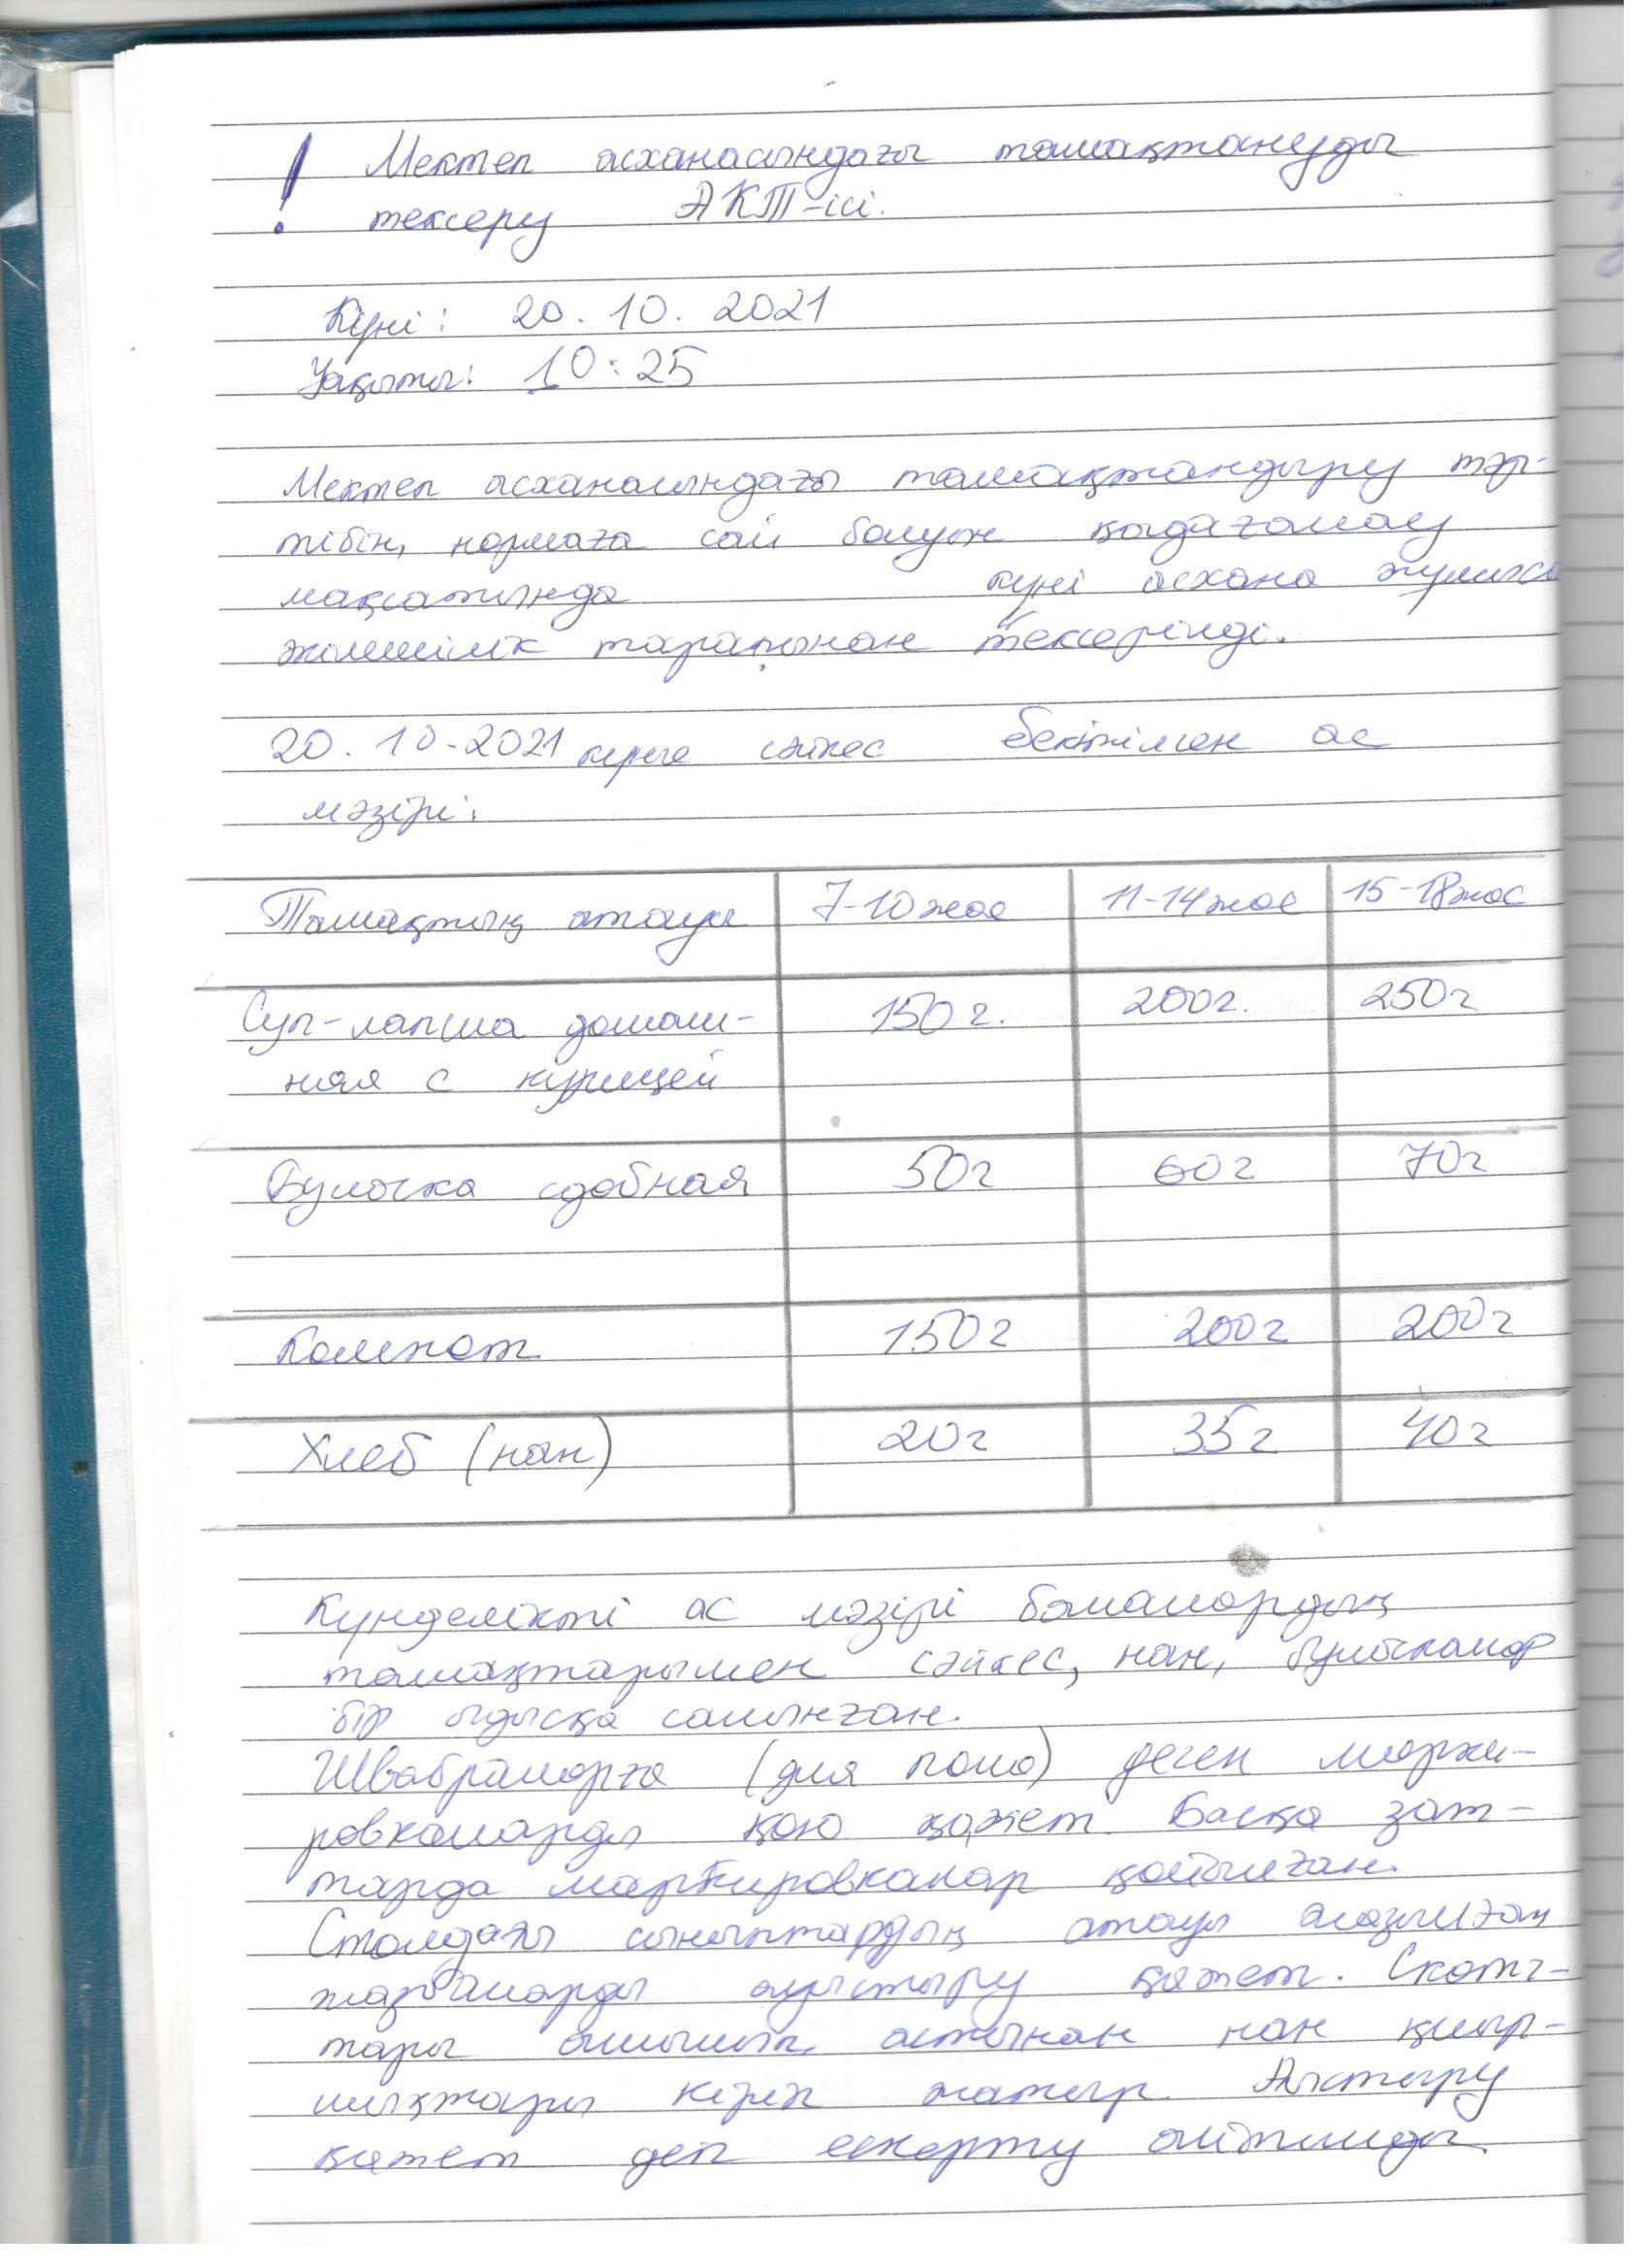 ! Мектеп асханасындағы тамақтануды
тексеру АКТ-ісі.
Күні: 20.10.2021
Уақыты: 10:25
Мектеп асханасындағы тамақтандыру тәр-
тібін, нормаға сай болуын қадағалау
мақсатында күні асхана жұмысы
әкімшілік тарапынан тексерілді.
20.10.2021 күнге сәйкес бекітілген ас
мәзірі:
Тамақтың атауы 7-10 жас 11-14 жас 15-18 жас
Суп-лапша домаш- 150 г. 200 г. 250 г
няя с курицей
Булочка сдобная 50 г 60 г 70 г
Компот 150 г 200 г 200 г
Хлеб (нан) 20 г 35 г 40 г
Күнделікті ас мәзірі балалардың
тамақтарымен сәйкес, нан, булочкалар
бір ыдысқа салынған.
Швабраларға (для пола) деген марки-
ровкаларды қою қажет. Басқа зат-
тарда маркировкалар қойылған.
Столдағы сыныптардың атауы жазылған
жазбаларды ауыстыру қажет. Скотч-
тары ашылып, астынан нан қиыр-
шықтары кіріп жатыр. Ауыстыру
қажет деп ескерту айтылды.